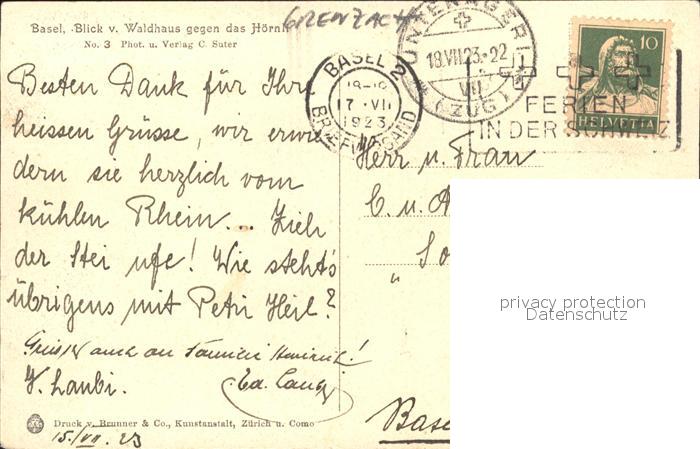 Basel, Blick v. Waldhaus gegen das Hörnli
GRENZACH
No. 3 Phot. u. Verlag C. Suter
UNTERAEGERI
18.VII.23.-22
VII
(ZUG)
BASEL 2
17.VII
1923
FERIEN
IN DER SCHWEIZ
10
HELVETIA
Besten Dank für Ihre
heissen Grüsse, wir erwi
dern sie herzlich vom
kühlen Rhein... Zieh
der Stei ufe! Wie steht's
übrigens mit Petri Heil?
Grüsse auch an Familie
Herr u. Frau
C. u. A
So
"
privacy protection
Datenschutz
Base
Druck v. Brunner & Co., Kunstanstalt, Zürich u. Como
15./VII. 23